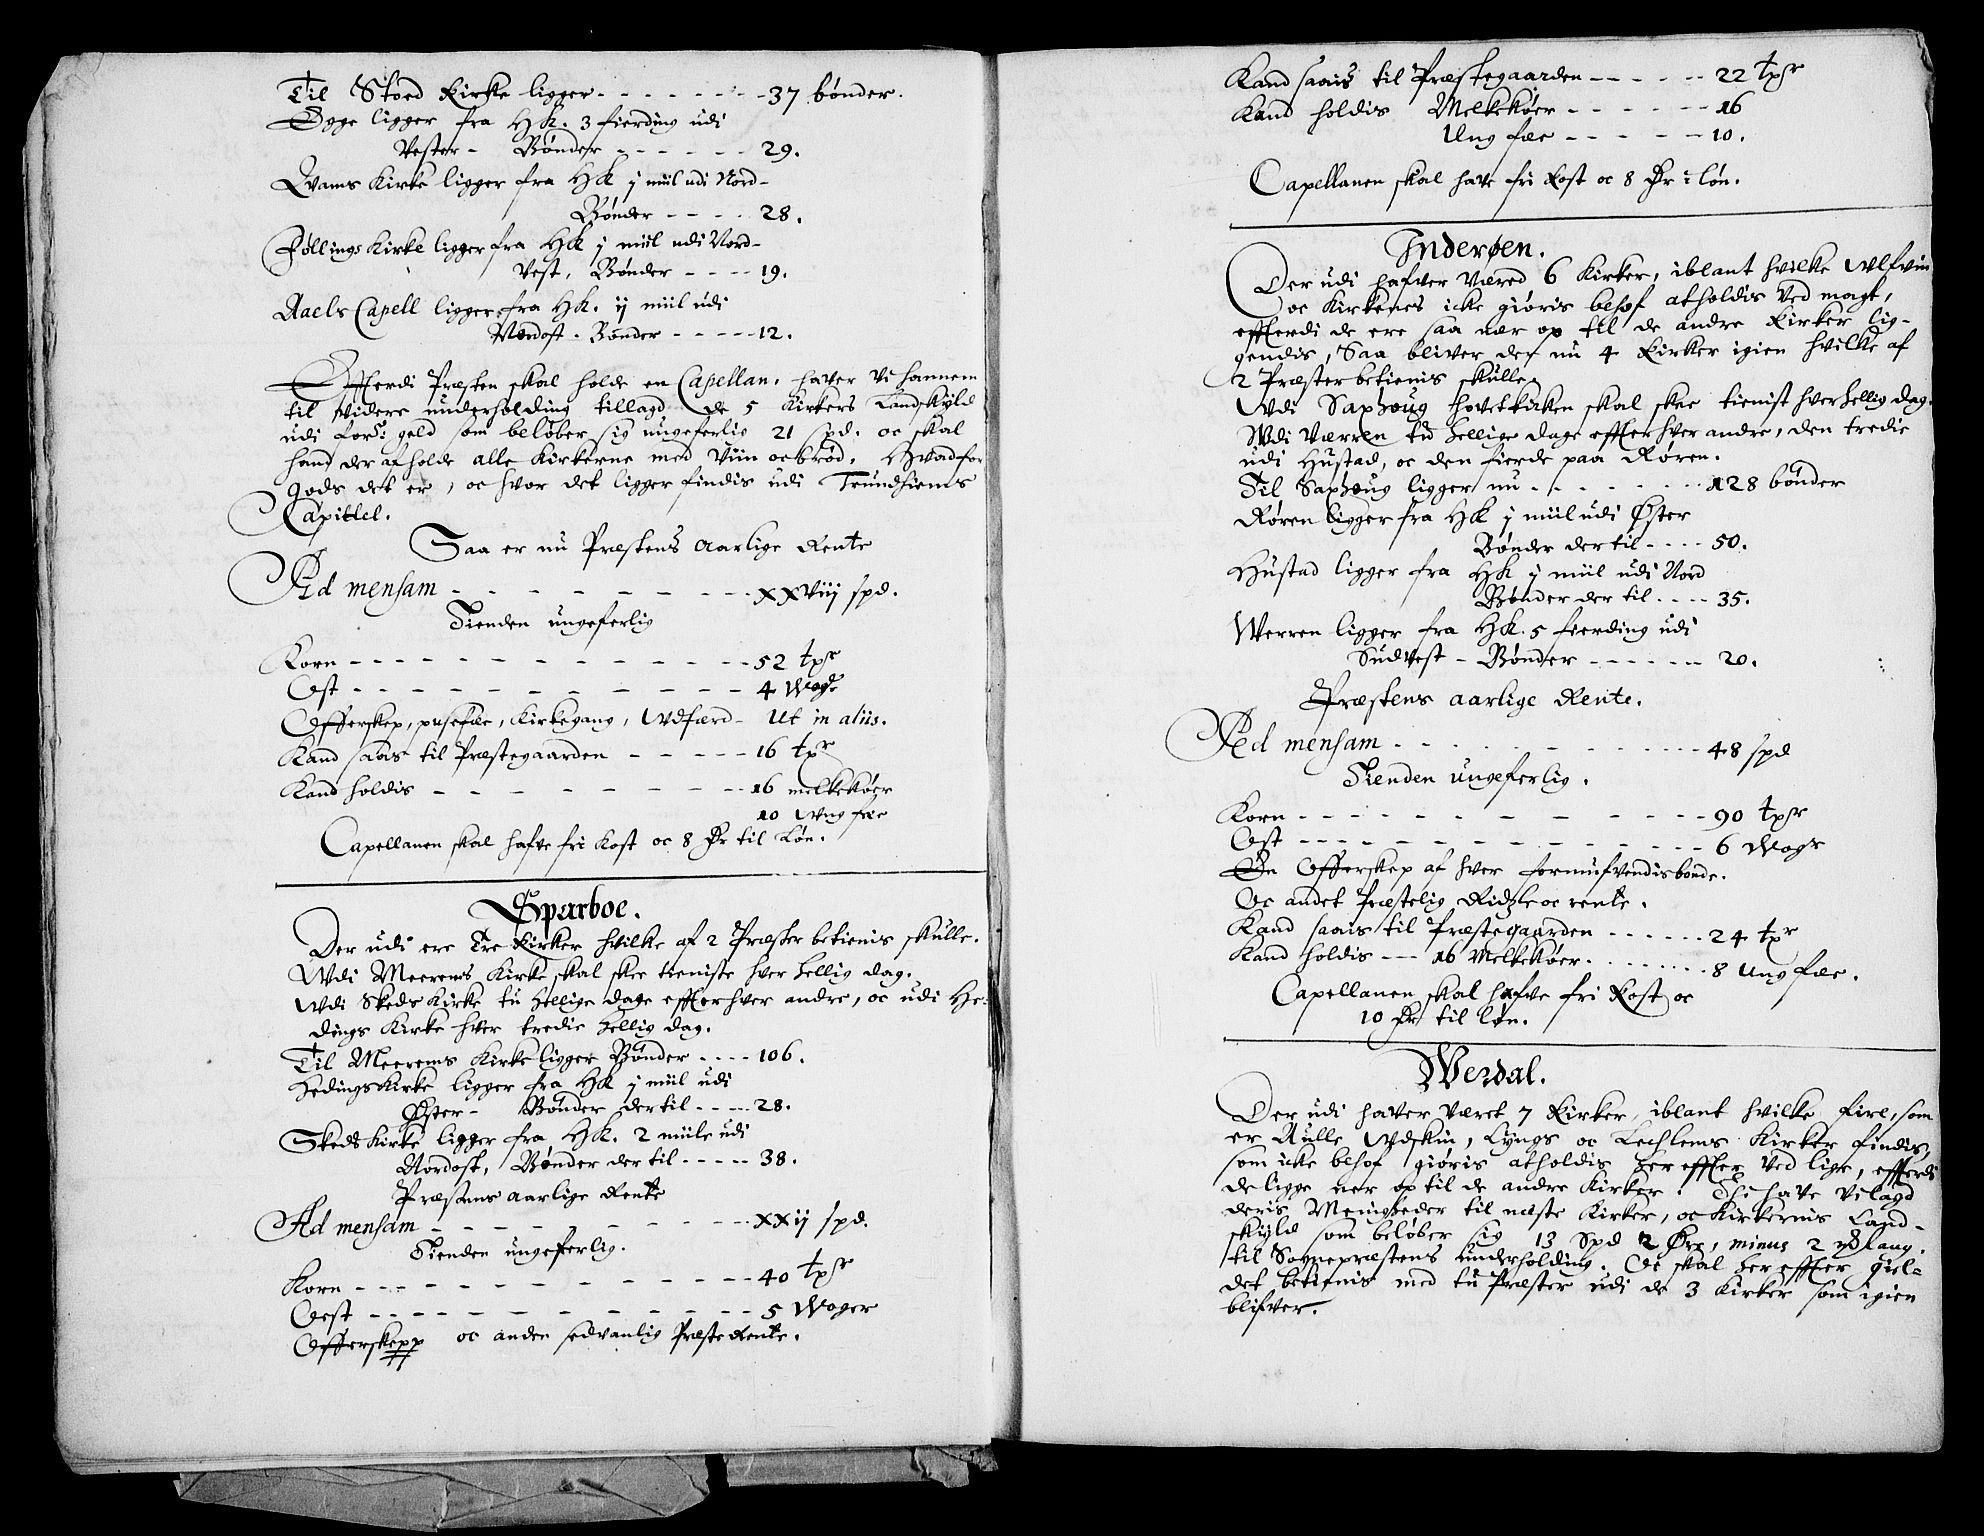 Til Stoed Kirke ligger - - - - - - - - 37 bønder.
Egge ligger fra HK. 3 fierding udi
Vester - Bønder - - - - - - 29.
Qvams Kirke ligger fra HK j miil udi Nord-
Bønder - - - - 28.
Føllings Kirke ligger fra HK j miil udi Nord-
Vest, Bønder - - - - 19.
Aaels Capell ligger fra HK. ij miil udi
Nordost - Bønder - - - - - 12.
Effterdi Præsten skal holde en Capellan, haver vi hannem
til videre underholding tillagd de 5 Kirkers Landskyld
udi forschr: geld som beløber sig ungeferlig 21 spd. oc skal
hand der afholde alle Kirkerne med Viin oc brød. Hvad for
gods det er, oc hvor det ligger findis udi Trundhiems
Capittel.
Saa er nu Præstens aarlige Rente
Ad mensam - - - - - - - XXViij spd.
Tienden ungeferlig
Korn - - - - - - - - - - - - 52 tpr
Ost - - - - - - - - - - - 4 Woge
Offerskep, pusefæe, Kirkegang, Udfærd - Ut in aliis.
Kand saais til Præstegaarden - - - - - 16 tpr
Kand holdis - - - - - - - - 16 melkekøer
10 Ung fæe
Capellanen skal hafve fri Kost oc 8 Dr til Løn.
Sparboe.
Der udi ere Tre Kirker hvilke af 2 Præster betienis skulle.
Udi Meerems Kirke skal skee tieniste hver hellig dag.
Udi Skeds Kirke tu hellige dage effter hver andre, oc udi He-
dings Kirke hver tredie hellig dag.
Til Meerems Kirke ligger Bønder - - - - 106.
Hedings Kirke ligger fra HK j miil udi
Øster - Bønder der til - - - - 28.
Skeds Kirke ligger fra HK. 2 miile udi
Nordost, Bønder der til - - - - - 38.
Præstens aarlige Rente
Ad mensam - - - - - - - - XXij spd.
Tienden ungeferlig.
Korn - - - - - - - - - - - 40 tpr
Oest - - - - - - - - - - - 5 Woger
Offerskepp oc anden sedvanlig Præste Rente.
Kand saais til Præstegaarden - - - - - 22 tpr
Kand holdis Melkekøer - - - - - - 16
Ung fæe - - - - - 10.
Capellanen skal have fri Kost oc 8 Dr i løn.
Inderøen.
Der udi hafver væred 6 Kirker, iblant hvilke Ulfvin
oc Kirkenes icke giøris behof at holdis ved magt,
effterdi de ere saa nær op til de andre Kirker lig-
gendis, Saa bliver der nu 4 Kirker igien hvilke af
2 Præster betienis skulle.
Udi Saxhoug hovetkirken skal skee tienist hver hellig dag.
Udi Værren tu hellige dage effter hver andre, den tredie
udi Hustad, oc den fierde paa Røren.
Til Saxhoug ligger nu - - - - - - 128 bønder
Røren ligger fra HK j miil udi Øster
Bønder der til - - - - 50.
Hustad ligger fra HK j miil udi Nord
Bønder der til - - - - 35.
Werren ligger fra HK. 5 fierding udi
Sudvest - Bønder - - - - - - 20.
Præstens aarlige Rente.
Ad mensam - - - - - - - - 48 spd
Tienden ungeferlig.
Korn - - - - - - - - - - - 90 tpr
Ost - - - - - - - - - - - 6 Woge
En Offerskep af hver formufvendis bonde.
Oc andet Præstelig Ridzle oc rente.
Kand saais til Præstegaarden - - - - - - 24 tpr
Kand holdis - - - 16 Melkekøer - - - - - - - 8 Ung fæe.
Capellanen skal hafve fri Kost oc
10 Dr til løn.
Werdal.
Der udi haver været 7 Kirker, iblant hvilke fire, som
er Aulle, Udskin, Lyngs oc Lechlems Kirker findis,
som icke behof giøris at holdis her effter ved lige, effterdi
de ligge ner op til de andre Kirker: Thi have vi lagd
deris Meenigheder til næste Kirker, oc Kirkernis Land-
skyld som beløber sig 13 Spd 2 Øre, minus 2 ℔dlaug.
til Sognepræstens underholding. Oc skal her effter giel-
det betienis med tu Præster udi de 3 Kirker som igien
blifver.